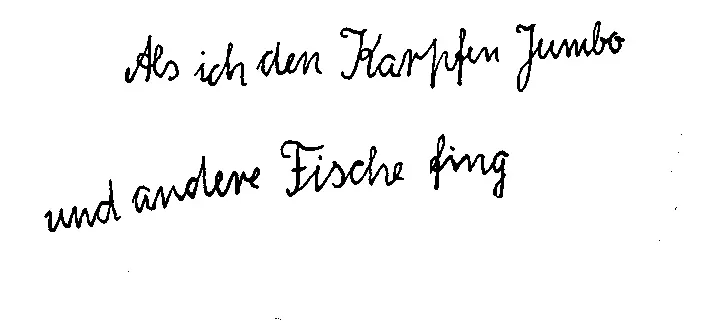 Als ich den Karpfen Jumbo
und andere Fische fing